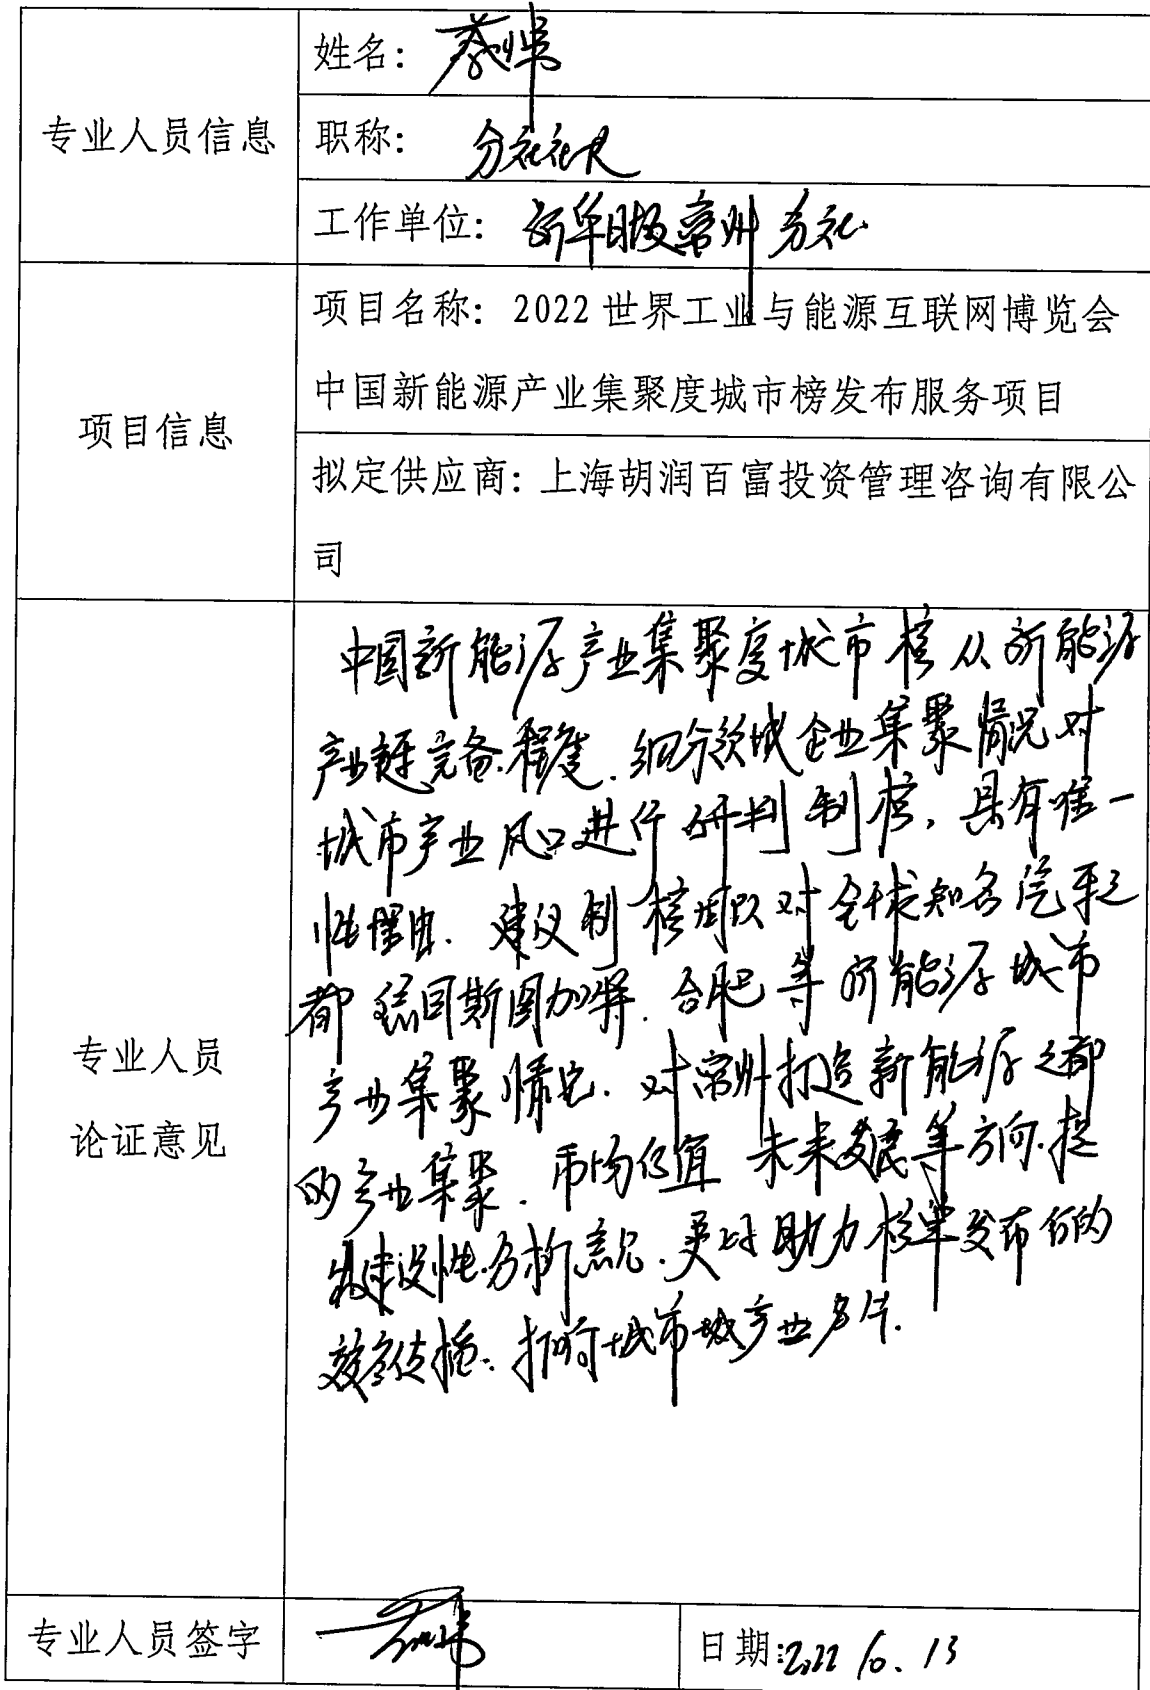 专业人员信息
姓名: 蔡炜
职称: 分社社长
工作单位: 新华日报常州分社
项目信息
项目名称: 2022 世界工业与能源互联网博览会
中国新能源产业集聚度城市榜发布服务项目
拟定供应商: 上海胡润百富投资管理咨询有限公
司
专业人员
论证意见
中国新能源产业集聚度城市榜从新能源
产业链完备程度、细分领域企业集聚情况对
城市产业风口进行研判制榜，具有唯一
性理由. 建议制榜团队对全球知名汽车之
都德国斯图加特、合肥等新能源城市
产业集聚情况. 对常州打造新能源之都
的产业集聚、市场价值 未来发展等方向. 提
建设性分析意见. 更好助力榜单发布后的
效应传播. 打响城市产业名片.
专业人员签字
日期: 2022 10. 13